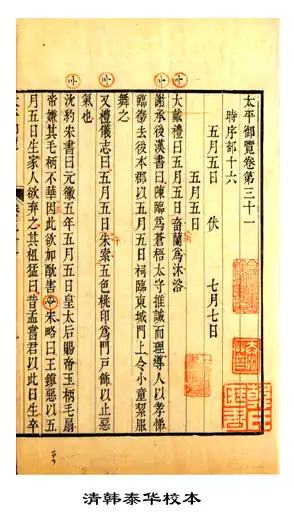 太平御覽卷第三十一
時序部十六
五月五日 伏 七月七日
五月五日
大戴禮曰五月五日畜蘭爲沐浴
謝承後漢書曰陳臨爲蒼梧太守推誠而理導人以孝悌
臨徵去後本郡以五月五日祠臨東城門上令小童絜服
舞之
又禮儀志曰五月五日朱索五色桃印爲門戸飾以止惡
氣也
沈約宋書曰元徽五年五月五日皇太后賜帝玉柄毛扇
帝嫌其毛柄不華因此欲加酖害 宋略曰王鎮惡以五
月五日生家人欲弃之其祖猛曰昔孟嘗君以此日生卒
清韩泰华校本